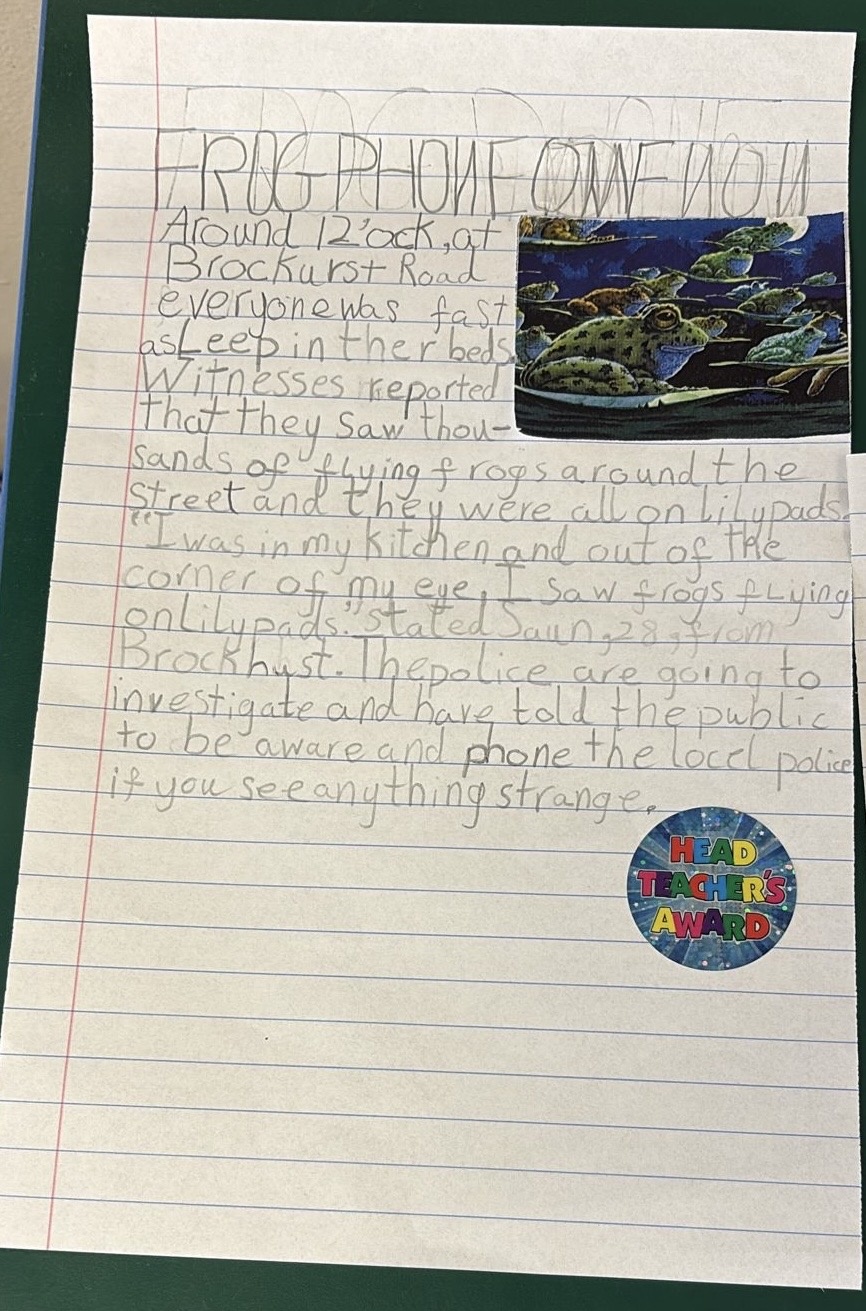 FROG PHONEOMENON
Around 12'ock, at
Brockurst Road
everyone was fast
asleep in ther beds.
Witnesses reported
that they saw thou-
sands of flying frogs around the
street and they were all on lilypads.
"I was in my kitchen and out of the
corner of my eye, I saw frogs flying
on lilypads." stated Saun, 28, from
Brockhust. The police are going to
investigate and have told the public
to be aware and phone the locel police
if you see anything strange.
HEAD
TEACHER'S
AWARD